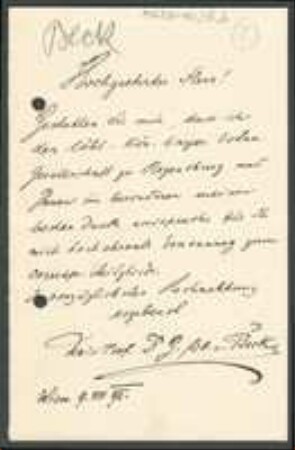 Beck
Hochgeehrter Herr!
Gestatten Sie mir, dass ich
der löbl. kön. bayer. botan.
Gesellschaft zu Regensburg und
Ihnen im besonderen meinen
besten Dank ausspreche für die
mich hoch ehrende Ernennung zum
Mitgliede.
In vorzüglichster Hochachtung
ergebenst
Dr G. v. Beck
Wien 9.